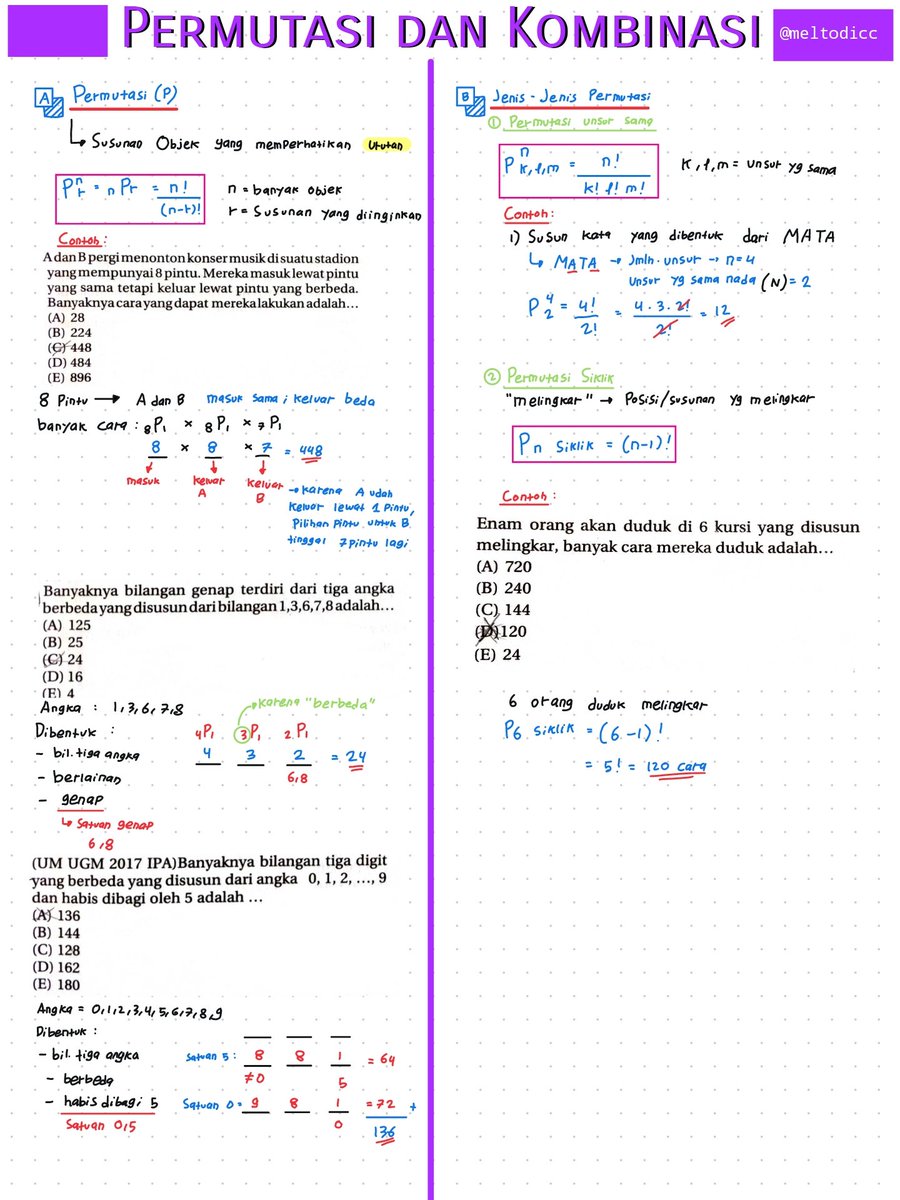 PERMUTASI DAN KOMBINASI
@meltodicc
A Permutasi (P)
↳ Susunan Objek yang memperhatikan Urutan
Pⁿᵣ = ₙPᵣ = n! / (n-r)!
n = banyak objek
r = Susunan yang diinginkan
Contoh :
A dan B pergi menonton konser musik di suatu stadion
yang mempunyai 8 pintu. Mereka masuk lewat pintu
yang sama tetapi keluar lewat pintu yang berbeda.
Banyaknya cara yang dapat mereka lakukan adalah...
(A) 28
(B) 224
(C) 448
(D) 484
(E) 896
8 Pintu → A dan B masuk sama ; keluar beda
banyak cara : ₈P₁ × ₈P₁ × ₇P₁
8 × 8 × 7 = 448
masuk keluar A keluar B
→ karena A udah
keluar lewat 1 pintu,
pilihan pintu untuk B
tinggal 7 pintu lagi
Banyaknya bilangan genap terdiri dari tiga angka
berbeda yang disusun dari bilangan 1,3,6,7,8 adalah...
(A) 125
(B) 25
(C) 24
(D) 16
(E) 4
Angka : 1,3,6,7,8
karena "berbeda"
Dibentuk : ₄P₁ ₃P₁ ₂P₁
- bil. tiga angka 4 3 2 = 24
- berlainan 6,8
- genap
↳ Satuan genap
6,8
(UM UGM 2017 IPA)Banyaknya bilangan tiga digit
yang berbeda yang disusun dari angka 0, 1, 2, ..., 9
dan habis dibagi oleh 5 adalah ...
(A) 136
(B) 144
(C) 128
(D) 162
(E) 180
Angka = 0,1,2,3,4,5,6,7,8,9
Dibentuk :
- bil. tiga angka Satuan 5 : 8 8 1 = 64
- berbeda ≠0 5
- habis dibagi 5 Satuan 0 = 9 8 1 = 72 +
Satuan 0,5 0 136
B Jenis - Jenis Permutasi
① Permutasi unsur sama
Pⁿ k,l,m = n! / k! l! m!
k, l, m = unsur yg sama
Contoh :
1) Susun kata yang dibentuk dari MATA
↳ MATA → Jmlh. unsur → n = 4
Unsur yg sama nada (N) = 2
P⁴₂ = 4! / 2! = 4 . 3 . 2! / 2! = 12
② Permutasi Siklik
"melingkar" → Posisi/susunan yg melingkar
Pn siklik = (n-1)!
Contoh :
Enam orang akan duduk di 6 kursi yang disusun
melingkar, banyak cara mereka duduk adalah...
(A) 720
(B) 240
(C) 144
(D) 120
(E) 24
6 orang duduk melingkar
P6 siklik = (6-1)!
= 5! = 120 cara